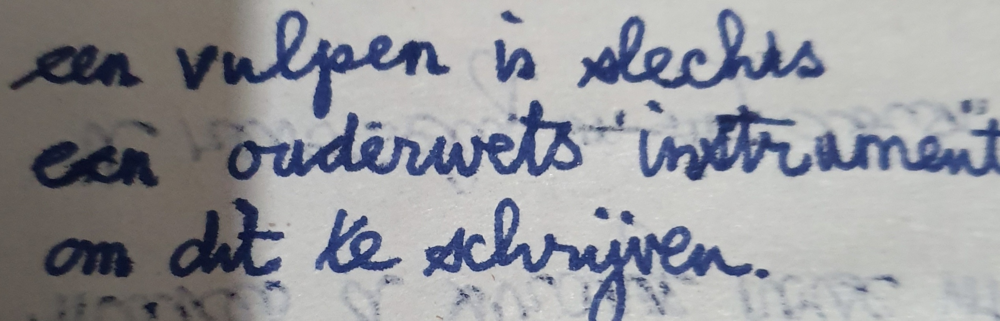 een vulpen is slechts
een ouderwets instrument
om dit te schrijven.